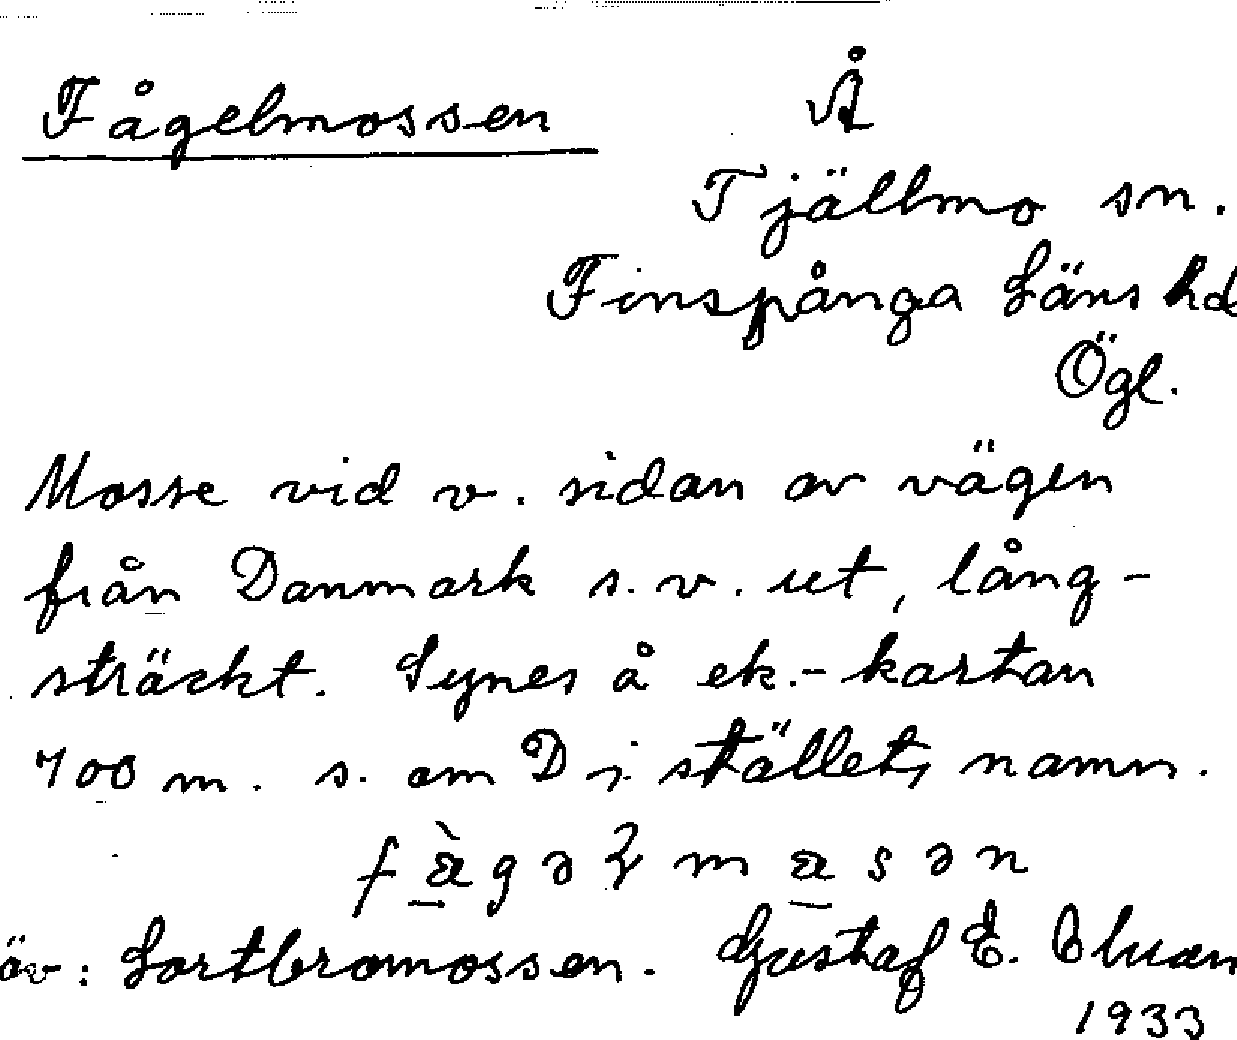 Fågelmossen
Å
Tjällmo sn.
Finspånga Läns hd
Ögl.
Mosse vid v. sidan av vägen
från Danmark s.v. ut, lång-
sträckt. Synes å ek.-kartan
700 m. s. om D i ställets namn.
öv: Sortbromossen. Gustaf E.
1933